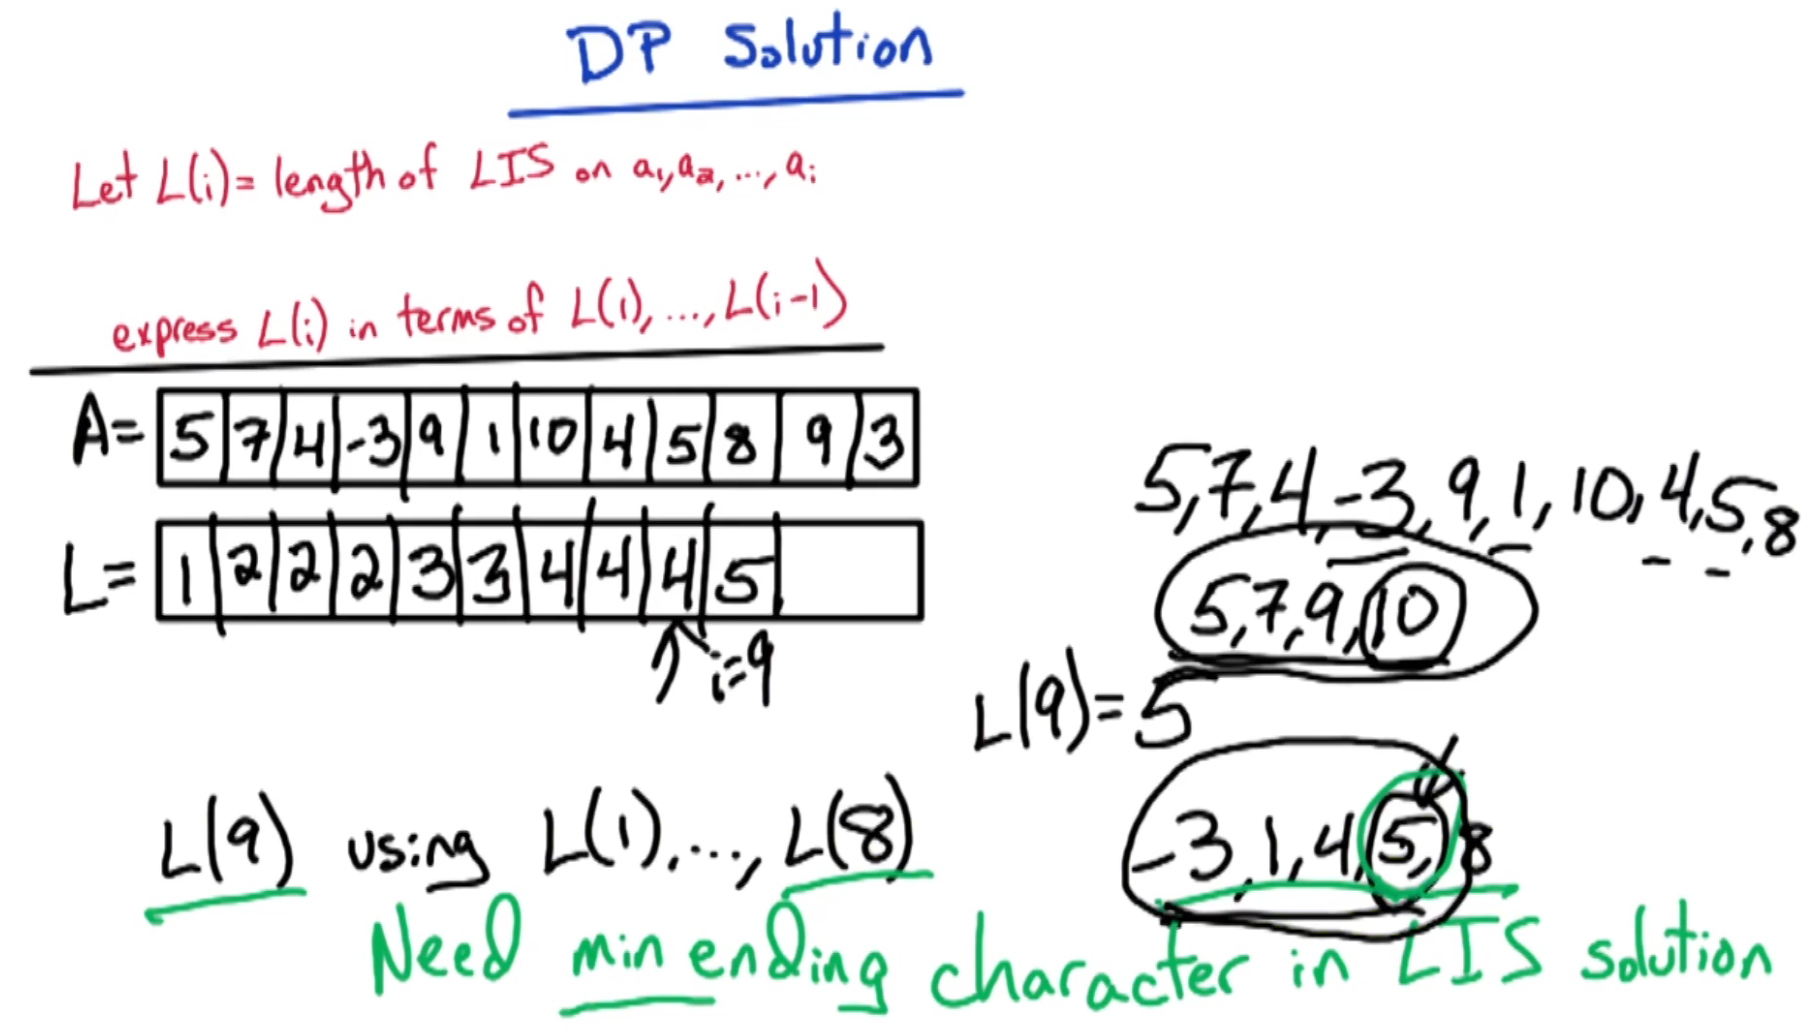 DP Solution
Let L(i) = length of LIS on a₁, a₂, ..., aᵢ
express L(i) in terms of L(1), ..., L(i-1)
A= 5 7 4 -3 9 1 10 4 5 8 9 3
L= 1 2 2 2 3 3 4 4 4 5
i=9
5, 7, 4, -3, 9, 1, 10, 4, 5, 8
5, 7, 9, 10
L(9) = 5
-3, 1, 4, 5, 8
L(9) using L(1), ..., L(8)
Need min ending character in LIS solution